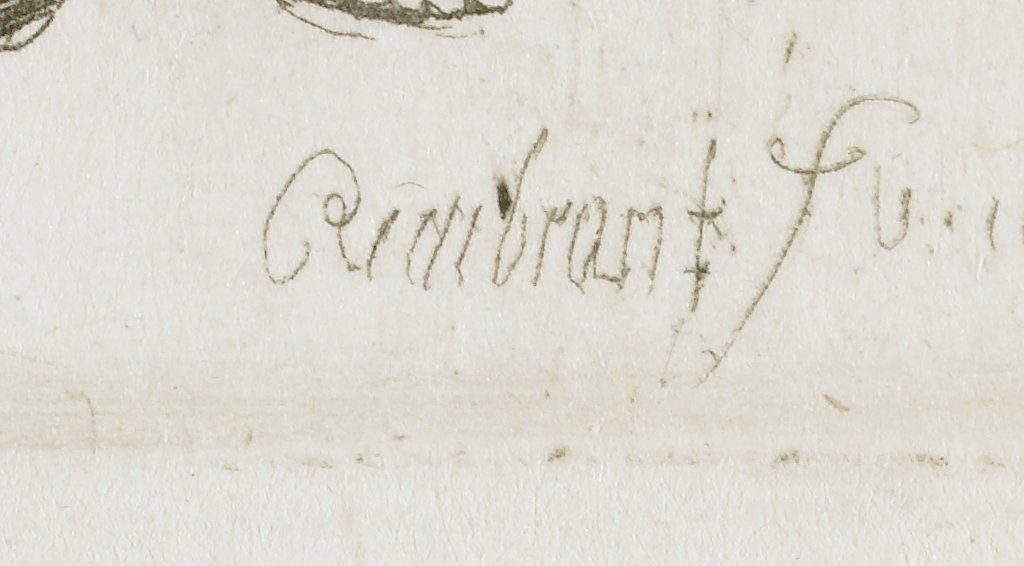 Rembrant f